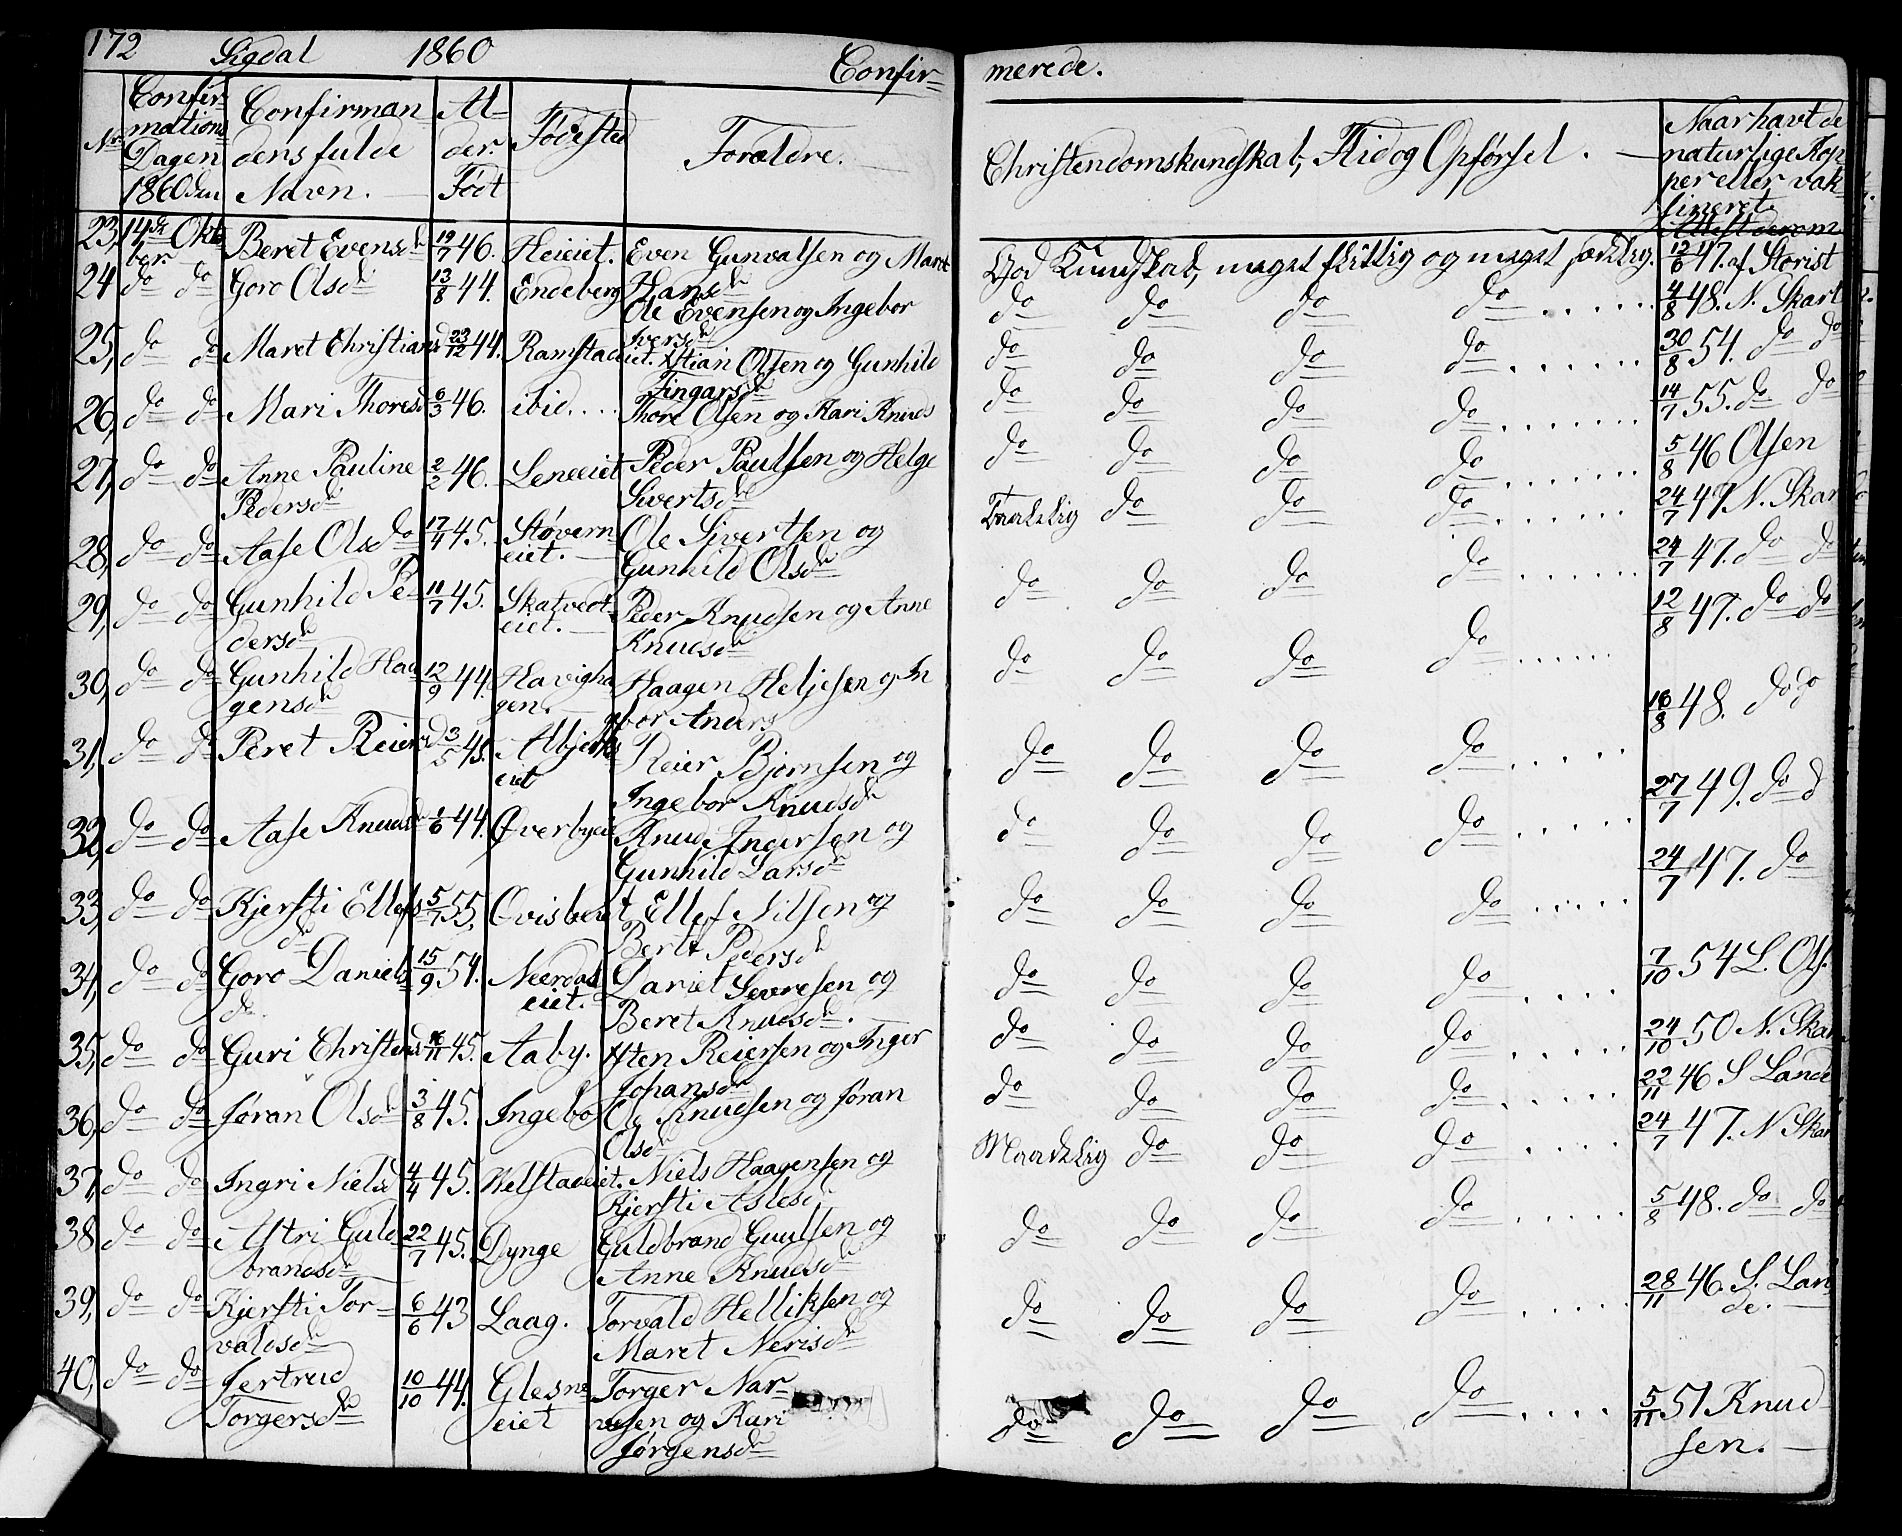 172 Sigdal 1860 Confir=
merede.
Nr. Confir= mations Dagen 1860 den
Confirman dens fulde Navn.
Al= der. Født
Fødested
Forældre.
Christendomskundskab, Flid og Opførsel.
Naar havt de naturlige Kop per eller vak sineret. Attest derom
23, 14de Oktober. Beret Evensd 19/7 46. Heieiet. Even Gunvalsen og Maret Hansd God Kundskab, meget flittig og meget sædelig. 12/6 47. af Storist
24 do do Goro Olsd 13/8 44. Endeberg Ole Evensen og Ingebor Iversd do do do do 4/8 48. N. Skart
25, do do Maret Christiansd 23/12 44. Ramstadeiet. Xstian Olsen og Gunhild Fingarsd do do do do 30/8 54. do do
26, do do Mari Thoresd 6/3 46. ibid.... Thore Olsen og Kari Knuds do do do do 14/7 55. do do
27, do do Anne Pauline Pedersd 2/2 46. Leneeiet Peder Paulsen og Helge Sivertsd do do do do 5/8 46 Olsen
28, do do Aase Olsd 17/4 45. Støverneiet. Ole Sivertsen og Gunhild Olsd Taalelig do do do 24/7 47 N. Skar
29, do do Gunhild Pedersd 11/7 45. Skatvedteiet. Peder Knudsen og Anne Knudsd do do do do 24/7 47. do do
30, do do Gunhild Haagensd 12/9 44. Havighagen. Haagen Heljesen og Ingbor Anders do do do do 12/8 47. do do
31, do do Beret Reiersd 3/5 45. Albjerkseiet Reier Bjørnsen og Ingebor Knudsd do do do do 16/8 48. do do
32, do do Aase Knudsd 1/6 44. Øverbyeie Knud Andersen og Gunhild Larsd do do do do 27/7 49. do d
33, do do Kjersti Ellefsd 5/7 55. Qvisleeiet Ellef Nilsen og Berte Pedersd do do do do 24/7 47. do
34, do do Goro Danielsd 15/9 54. Neerdaleiet. Daniel Severesen og Beret Knudsd. do do do do 7/10 54 L. Ols.
35, do do Guri Christensd 16/11 45. Aaby. Xsten Reiersen og Inger Johansd do do do do 24/10 50 N. Skar
36, do do Jøran Olsd 3/8 45. Ingebo Ole Knudsen og Jøran Olsd do do do do 22/11 46 S Lande
37, do do Ingri Nielsd 4/4 45. Welstadeiet. Niels Haagensen og Kjersti Aslesd Maadelig do do do 24/7 47. N Skar
38 do do Astri Guldbrandsd 22/7 45. Dynge Guldbrand Guulsen og Anne Knudsd do do do do 5/8 48. do do
39, do do Kjersti Torvaldsd 6/6 43 Laag. Torvald Helliksen og Maret Nerisd do do do do 28/11 46. S. Lande.
40, do do Jertrud Torgersd 10/10 44. Glesneeiet Torger Narvesen og Kari Jørgensd do do do do 5/11 51 Knudsen.